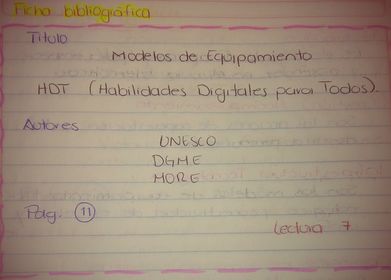 Ficha bibliográfica
Titulo
Modelos de Equipamiento
HDT (Habilidades Digitales para Todos).
Autores
UNESCO
DGME
MORE
Pag. 11
Lectura 7